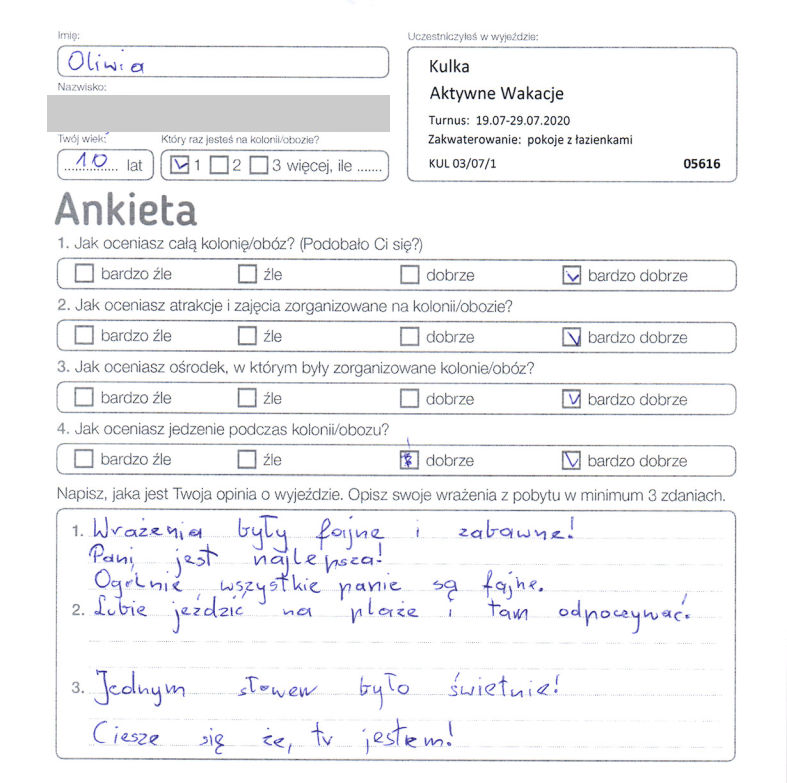 Imię:
Uczestniczyłeś w wyjeździe:
Oliwia
Kulka
Aktywne Wakacje
Turnus: 19.07-29.07.2020
Zakwaterowanie: pokoje z łazienkami
KUL 03/07/1 05616
Nazwisko:
Twój wiek:
Który raz jesteś na kolonii/obozie?
10 lat
1 2 3 więcej, ile .......
Ankieta
1. Jak oceniasz całą kolonię/obóz? (Podobało Ci się?)
bardzo źle źle dobrze bardzo dobrze
2. Jak oceniasz atrakcje i zajęcia zorganizowane na kolonii/obozie?
bardzo źle źle dobrze bardzo dobrze
3. Jak oceniasz ośrodek, w którym były zorganizowane kolonie/obóz?
bardzo źle źle dobrze bardzo dobrze
4. Jak oceniasz jedzenie podczas kolonii/obozu?
bardzo źle źle dobrze bardzo dobrze
Napisz, jaka jest Twoja opinia o wyjeździe. Opisz swoje wrażenia z pobytu w minimum 3 zdaniach.
1. Wrażenia były fajne i zabawne!
Pani jest najlepsza!
Ogólnie wszystkie panie są fajne.
2. Lubie jeździć na plaże i tam odpoczywać.
3. Jednym słowem było świetnie!
Ciesze się że, tu jestem!